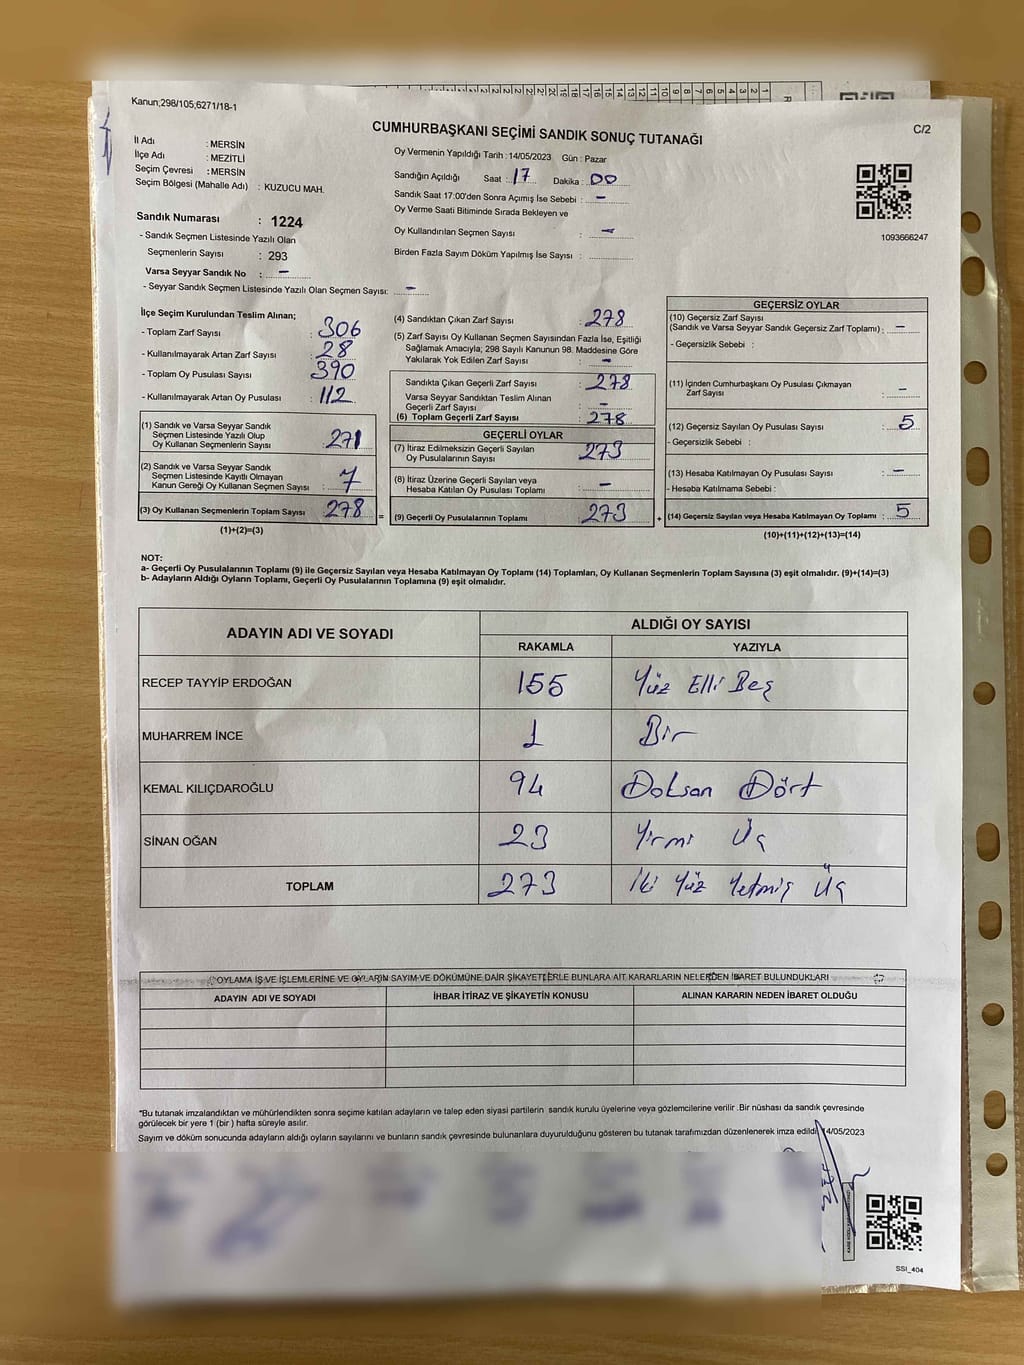 Kanun;298/105;6271/18-1
C/2
CUMHURBAŞKANI SEÇİMİ SANDIK SONUÇ TUTANAĞI
İl Adı : MERSİN
İlçe Adı : MEZİTLİ
Seçim Çevresi : MERSİN
Seçim Bölgesi (Mahalle Adı) : KUZUCU MAH.
Sandık Numarası : 1224
- Sandık Seçmen Listesinde Yazılı Olan
Seçmenlerin Sayısı : 293
Varsa Seyyar Sandık No : -
- Seyyar Sandık Seçmen Listesinde Yazılı Olan Seçmen Sayısı: -
Oy Vermenin Yapıldığı Tarih : 14/05/2023 Gün : Pazar
Sandığın Açıldığı Saat : 17 Dakika : 00
Sandık Saat 17:00'den Sonra Açımış İse Sebebi : -
Oy Verme Saati Bitiminde Sırada Bekleyen ve
Oy Kullandırılan Seçmen Sayısı : -
Birden Fazla Sayım Döküm Yapılmış İse Sayısı :
1093666247
İlçe Seçim Kurulundan Teslim Alınan;
- Toplam Zarf Sayısı : 306
- Kullanılmayarak Artan Zarf Sayısı : 28
- Toplam Oy Pusulası Sayısı : 390
- Kullanılmayarak Artan Oy Pusulası : 112
(1) Sandık ve Varsa Seyyar Sandık
Seçmen Listesinde Yazılı Olup
Oy Kullanan Seçmenlerin Sayısı : 271
(2) Sandık ve Varsa Seyyar Sandık
Seçmen Listesinde Kayıtlı Olmayan
Kanun Gereği Oy Kullanan Seçmen Sayısı : 7
(3) Oy Kullanan Seçmenlerin Toplam Sayısı : 278 =
(1)+(2)=(3)
(4) Sandıktan Çıkan Zarf Sayısı : 278
(5) Zarf Sayısı Oy Kullanan Seçmen Sayısından Fazla İse, Eşitliği
Sağlamak Amacıyla; 298 Sayılı Kanunun 98. Maddesine Göre
Yakılarak Yok Edilen Zarf Sayısı : -
Sandıkta Çıkan Geçerli Zarf Sayısı : 278
Varsa Seyyar Sandıktan Teslim Alınan
Geçerli Zarf Sayısı : -
(6) Toplam Geçerli Zarf Sayısı : 278
GEÇERLİ OYLAR
(7) İtiraz Edilmeksizin Geçerli Sayılan
Oy Pusulalarının Sayısı : 273
(8) İtiraz Üzerine Geçerli Sayılan veya
Hesaba Katılan Oy Pusulası Toplamı : -
(9) Geçerli Oy Pusulalarının Toplamı : 273 +
GEÇERSİZ OYLAR
(10) Geçersiz Zarf Sayısı
(Sandık ve Varsa Seyyar Sandık Geçersiz Zarf Toplamı) : -
- Geçersizlik Sebebi :
(11) İçinden Cumhurbaşkanı Oy Pusulası Çıkmayan
Zarf Sayısı : -
(12) Geçersiz Sayılan Oy Pusulası Sayısı : 5
- Geçersizlik Sebebi :
(13) Hesaba Katılmayan Oy Pusulası Sayısı : -
- Hesaba Katılmama Sebebi :
(14) Geçersiz Sayılan veya Hesaba Katılmayan Oy Toplamı : 5
(10)+(11)+(12)+(13)=(14)
NOT:
a- Geçerli Oy Pusulalarının Toplamı (9) ile Geçersiz Sayılan veya Hesaba Katılmayan Oy Toplamı (14) Toplamları, Oy Kullanan Seçmenlerin Toplam Sayısına (3) eşit olmalıdır. (9)+(14)=(3)
b- Adayların Aldığı Oyların Toplamı, Geçerli Oy Pusulalarının Toplamına (9) eşit olmalıdır.
ADAYIN ADI VE SOYADI
ALDIĞI OY SAYISI
RAKAMLA YAZIYLA
RECEP TAYYİP ERDOĞAN 155 Yüz Elli Beş
MUHARREM İNCE 1 Bir
KEMAL KILIÇDAROĞLU 94 Doksan Dört
SİNAN OĞAN 23 Yirmi Üç
TOPLAM 273 İki Yüz Yetmiş Üç
OYLAMA İŞ VE İŞLEMLERİNE VE OYLARIN SAYIM VE DÖKÜMÜNE DAİR ŞİKAYETLERLE BUNLARA AİT KARARLARIN NELERDEN İBARET BULUNDUKLARI
ADAYIN ADI VE SOYADI İHBAR İTİRAZ VE ŞİKAYETİN KONUSU ALINAN KARARIN NEDEN İBARET OLDUĞU
*Bu tutanak imzalandıktan ve mühürlendikten sonra seçime katılan adayların ve talep eden siyasi partilerin sandık kurulu üyelerine veya gözlemcilerine verilir .Bir nüshası da sandık çevresinde
görülecek bir yere 1 (bir ) hafta süreyle asılır.
Sayım ve döküm sonucunda adayların aldığı oyların sayılarını ve bunların sandık çevresinde bulunanlara duyurulduğunu gösteren bu tutanak tarafımızdan düzenlenerek imza edildi. 14/05/2023
SSI_404